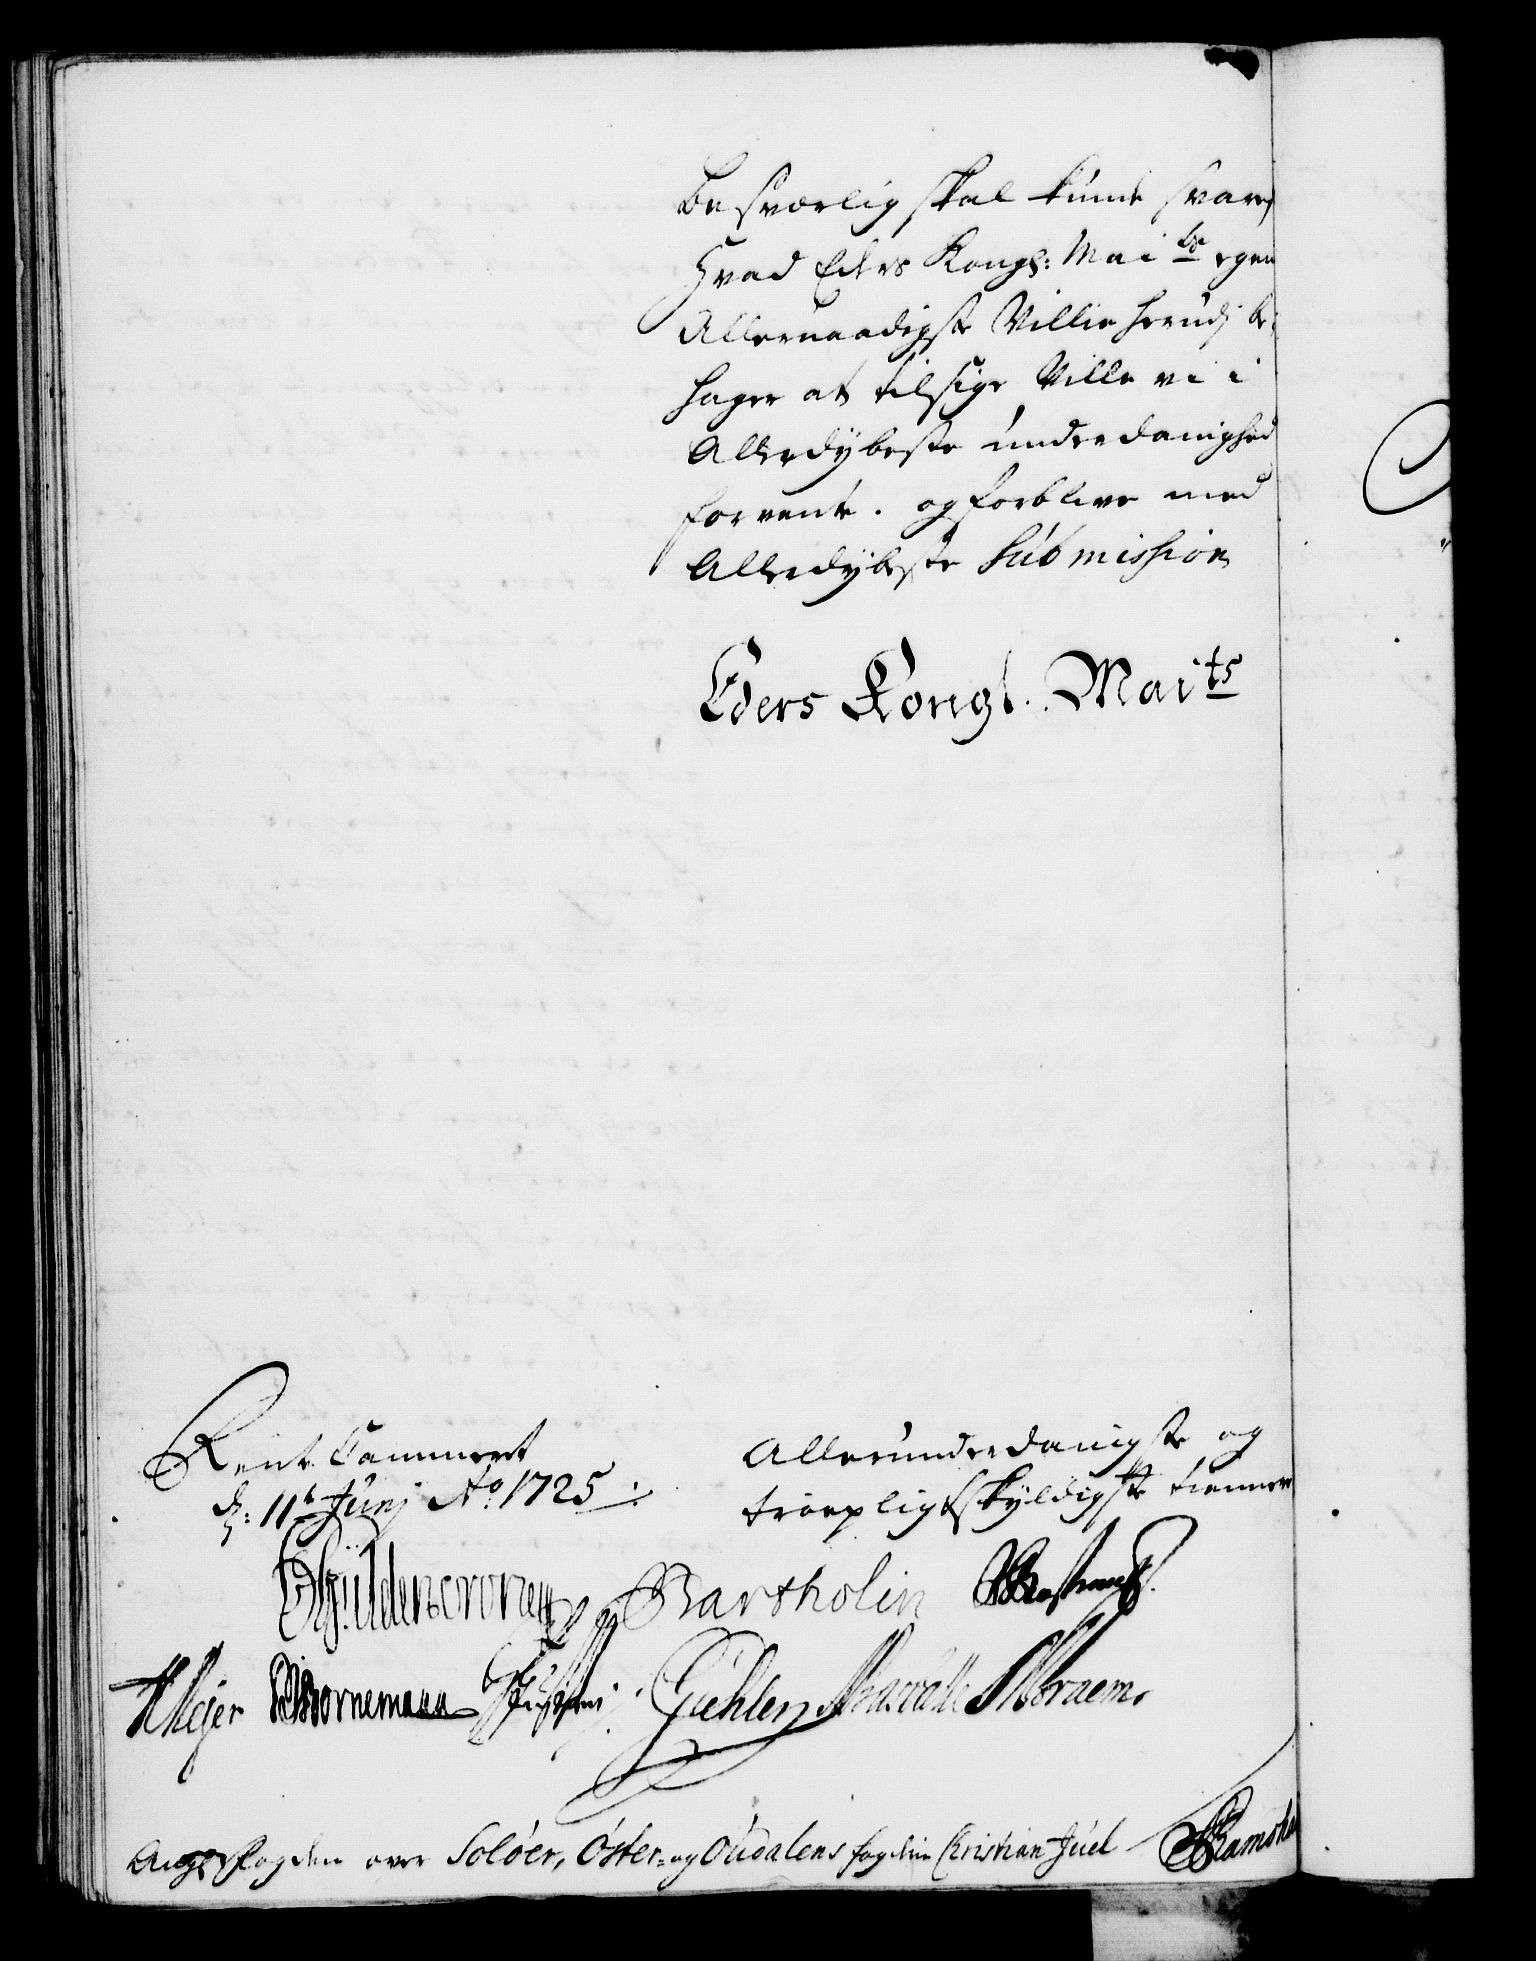 besværlig skal kunde svare,
Hvad Eders Kongl: Maits egen
Allernaadigste Villie herudj be-
hager at tilsige Ville vi i
Allerdÿbeste underdanighed
forvente. og forblive med
Allerdÿbeste Submission
Eders Kongl. Maits
Rente Cammeret
d: 11t Junj Ao 1725
Allerunderdanigste og
troepligtskyldigste tienner
Güldencrone
Bartholin
Meyer Bornemann
Gühlen
Ang: Fogden over Soløer, Øster- og Oudalens fogderi Christian Juel